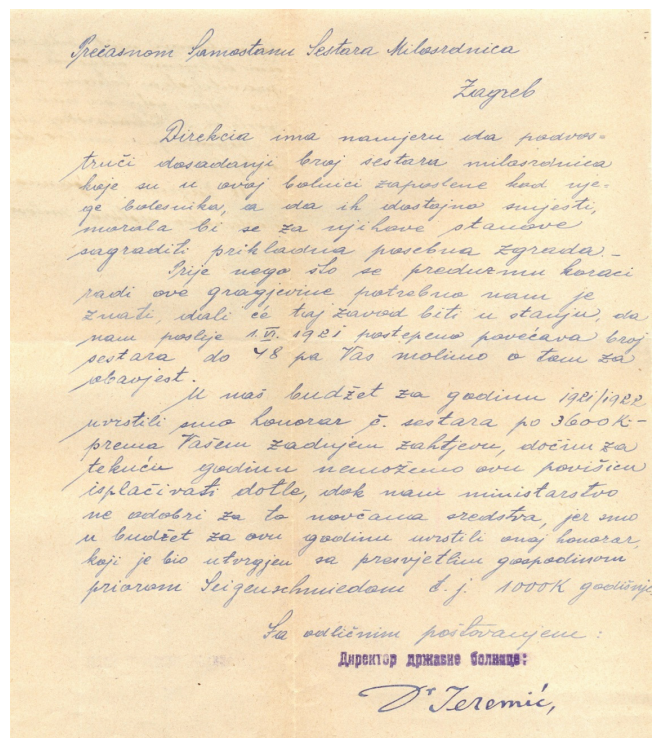 Prečasnom Samostanu Sestara Milosrdnica
Zagreb
Direkcia ima namjeru da podvos=
truči dosadanji broj sestara milosrdnica
koje su u ovoj bolnici zaposlene kod nje=
ge bolesnika, a da ih dostojno smjesti,
morala bi se za njihove stanove
sagraditi prikladna posebna zgrada.-
Prije nego što se preduzmu koraci
radi ove gragjevine potrebno nam je
znati, dali će taj zavod biti u stanju, da
nam poslije 1.VI. 1921 postepeno povećava broj
sestara do 48 pa Vas molimo o tom za
obavjest.
U naš budžet za godinu 1921/1922
uvrstili smo honorar č. sestara po 3600K-
prema Vašem zadnjem zahtjevu, dočim za
tekuću godinu nemožemo ovu povišicu
isplačivati dotle, dok nam ministarstvo
ne odobri za to novčana sredstva, jer smo
u budžet za ovu godinu uvrstili onaj honorar,
koji je bio utvrgjen sa presvjetlim gospodinom
priorom Seigenschmiedom t. j. 1000K godišnje.
Sa odličnim poštovanjem:
Директор државне болнице:
Dr Jeremić,